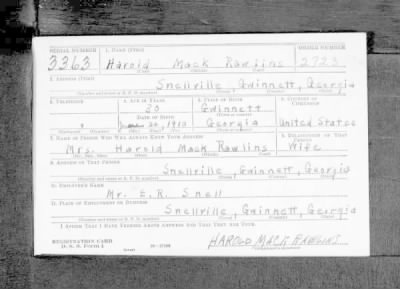 SERIAL NUMBER 1. NAME (Print) ORDER NUMBER
3363 Harold Mack Rawlins 2723
(First) (Middle) (Last)
2. ADDRESS (Print)
Snellville Gwinnett, Georgia
(Number and street or R. F. D. number) (Town) (County) (State)
3. TELEPHONE 4. AGE IN YEARS 5. PLACE OF BIRTH 6. COUNTRY OF CITIZENSHIP
30 Gwinnett
DATE OF BIRTH (Town or county)
1910 Georgia United States
(Exchange) (No.) (Mo.) (Day) (Yr.) (State or country)
7. NAME OF PERSON WHO WILL ALWAYS KNOW YOUR ADDRESS 8. RELATIONSHIP OF THAT PERSON
Mrs. Harold Mack Rawlins Wife
(Mr., Mrs., Miss) (First) (Middle) (Last)
9. ADDRESS OF THAT PERSON
Snellville, Gwinnett, Georgia
(Number and street or R. F. D. number) (Town) (County) (State)
10. EMPLOYER'S NAME
Mr. E. R. Snell
11. PLACE OF EMPLOYMENT OR BUSINESS
Snellville, Gwinnett, Georgia
(Number and street or R. F. D. number) (Town) (County) (State)
I AFFIRM THAT I HAVE VERIFIED ABOVE ANSWERS AND THAT THEY ARE TRUE.
REGISTRATION CARD
D. S. S. FORM 1 HAROLD MACK RAWLINS
(Registrant's signature)